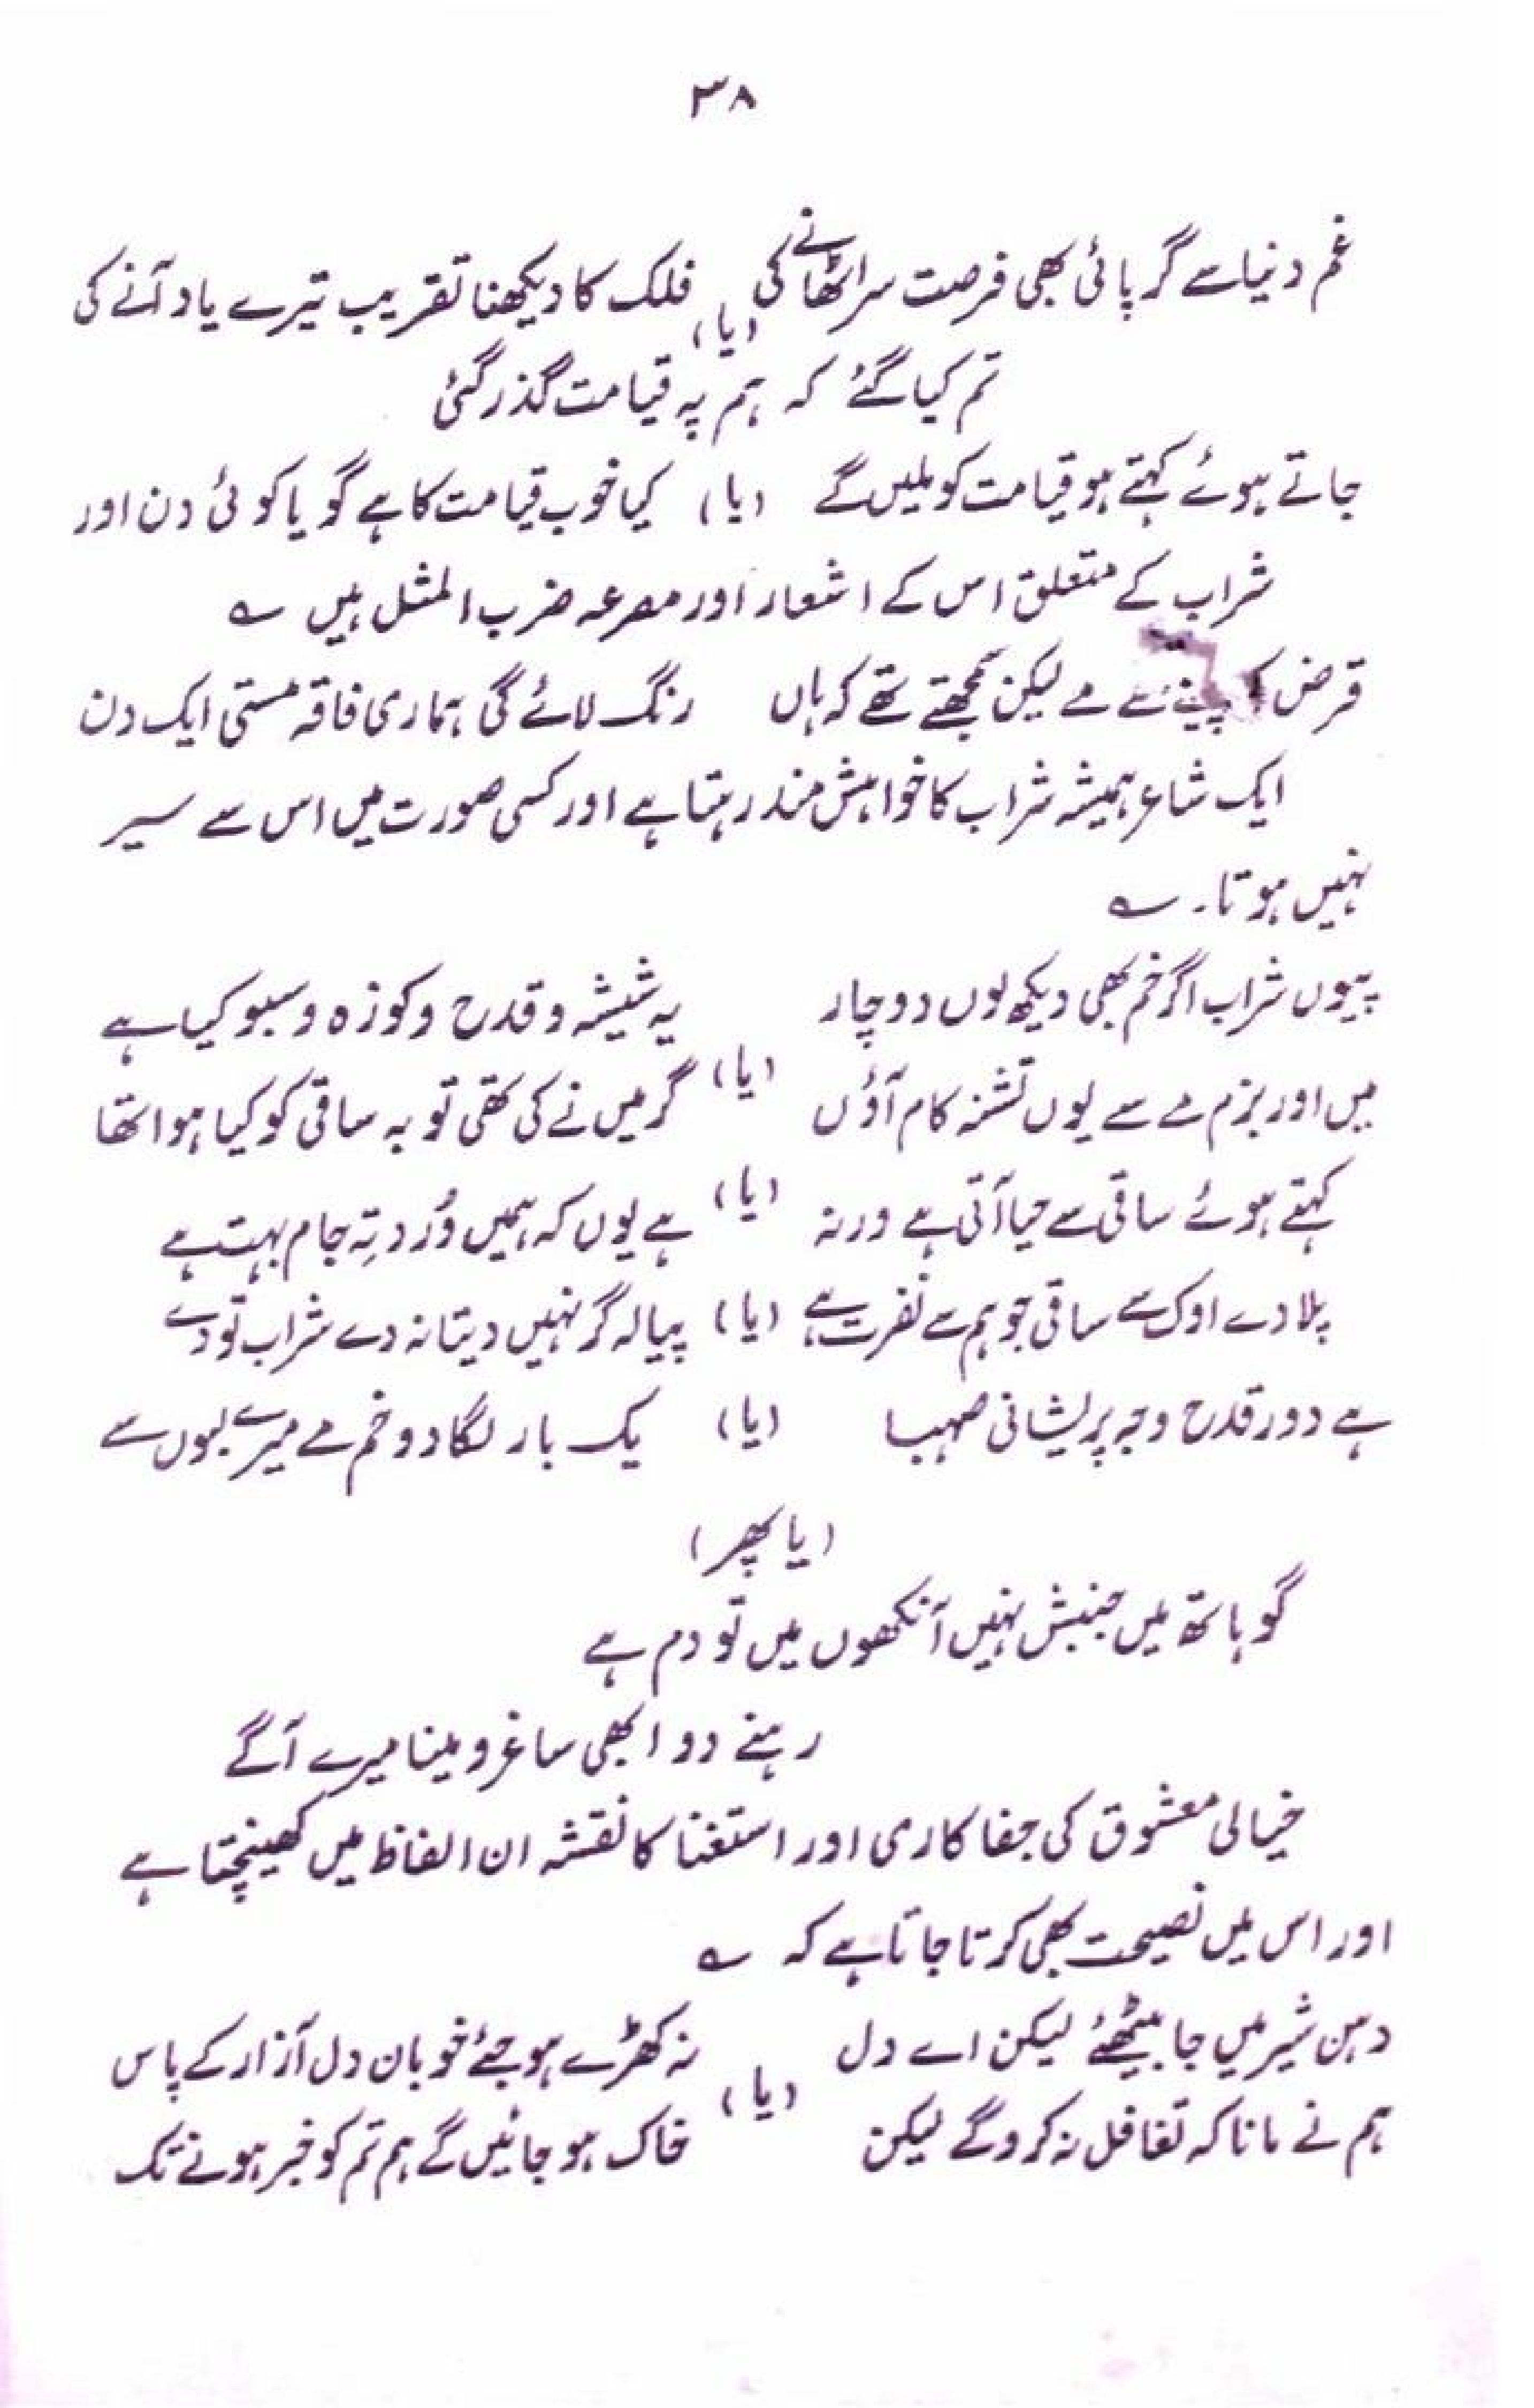 ۳۸
غم دنیا سے گر پائی بھی فرصت سر اٹھانے کی فلک کا دیکھنا تقریب تیرے یاد آنے کی
(یا)
تم کیا گئے کہ ہم پہ قیامت گذر گئی
جاتے ہوئے کہتے ہو قیامت کو ملیں گے (یا) کیا خوب قیامت کا ہے گویا کوئی دن اور
شراب کے متعلق اس کے اشعار اور مصرعہ ضرب المثل ہیں ؎
قرض کی پیتے تھے مے لیکن سمجھتے تھے کہ ہاں رنگ لائے گی ہماری فاقہ مستی ایک دن
ایک شاعر ہمیشہ شراب کا خواہش مند رہتا ہے اور کسی صورت میں اس سے سیر
نہیں ہوتا۔ ؎
پیوں شراب اگر خم بھی دیکھ لوں دو چار یہ شیشہ و قدح و کوزہ و سبو کیا ہے
(یا)
میں اور بزم مے سے یوں تشنہ کام آؤں گر میں نے کی تھی توبہ ساقی کو کیا ہوا تھا
(یا)
کہتے ہوئے ساقی سے حیا آتی ہے ورنہ ہے یوں کہ ہمیں دُرد تِہ جام بہت ہے
پلا دے اوک سے ساقی جو ہم سے نفرت ہے (یا) پیالہ گر نہیں دیتا نہ دے شراب تو دے
ہے دور قدح وجہ پریشانی صہبا (یا) یک بار لگا دو خم مے میرے لبوں سے
(یا پھر)
گو ہاتھ میں جنبش نہیں آنکھوں میں تو دم ہے
رہنے دو ابھی ساغر و مینا میرے آگے
خیالی معشوق کی جفا کاری اور استغنا کا نقشہ ان الفاظ میں کھینچتا ہے
اور اس میں نصیحت بھی کرتا جاتا ہے کہ ؎
دہن شیر میں جا بیٹھئے لیکن اے دل نہ کھڑے ہو جئے خوبان دل آزار کے پاس
(یا)
ہم نے مانا کہ تغافل نہ کرو گے لیکن خاک ہو جائیں گے ہم تم کو خبر ہونے تک